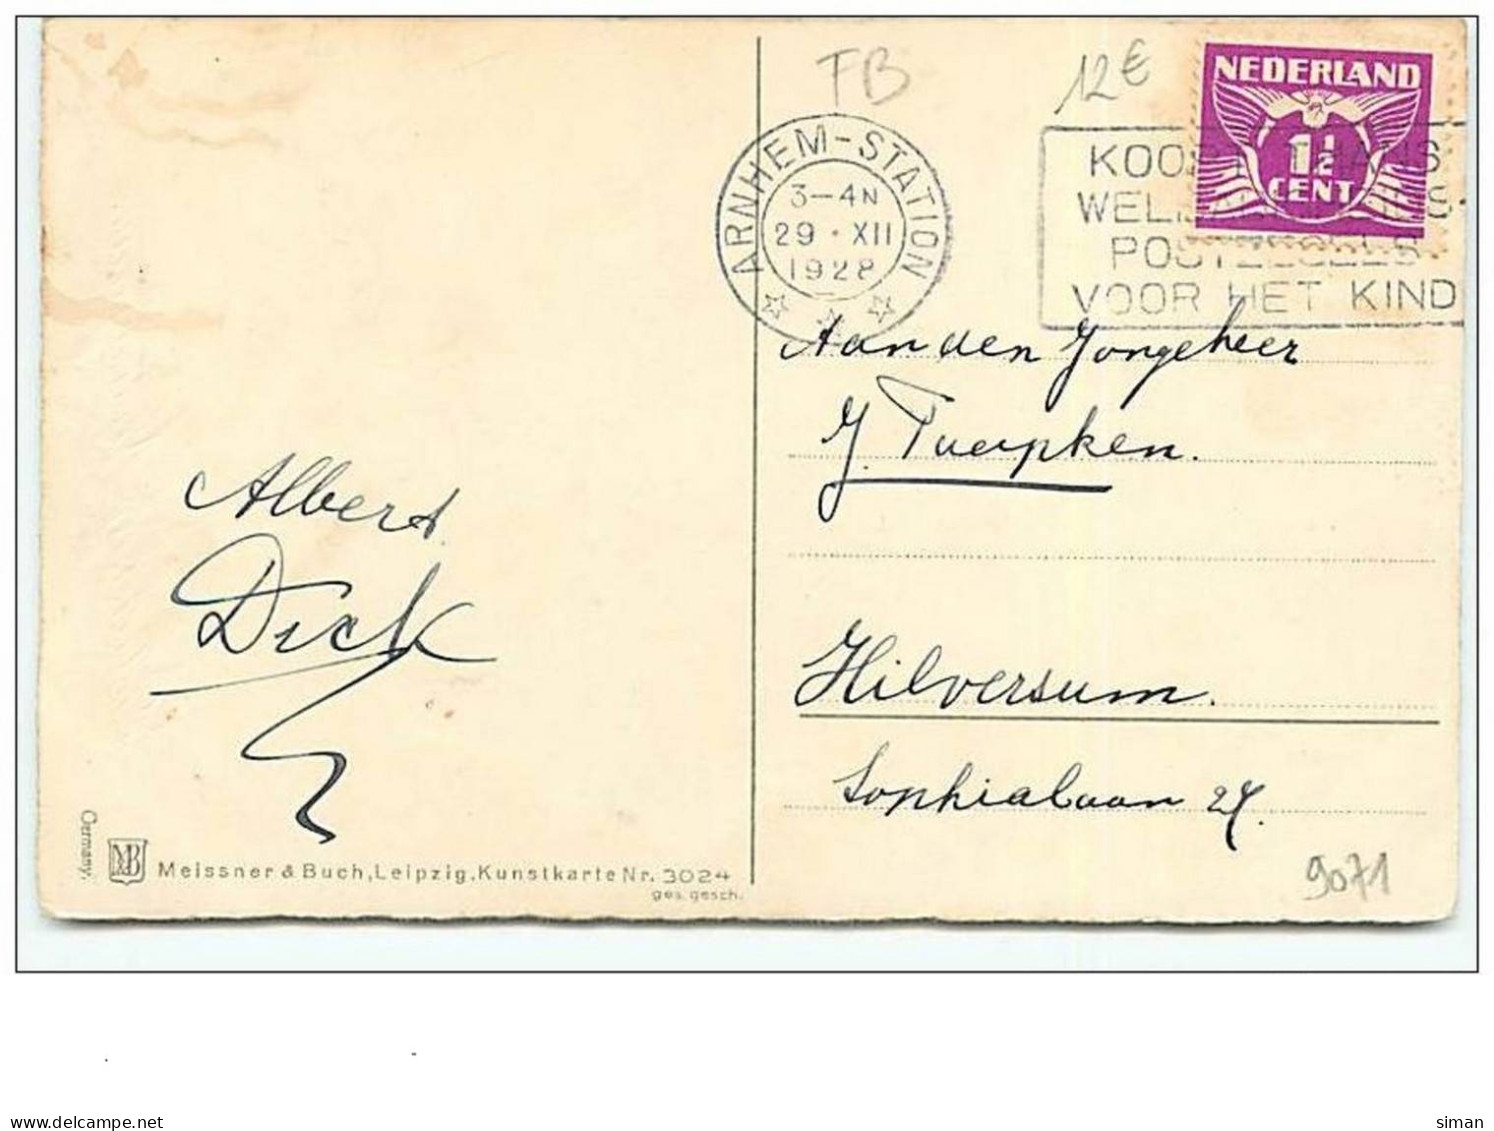 FB
12€
NEDERLAND
1½
CENT
ARNHEM-STATION
3-4N
29·XII
1928
POSTZEGELS
VOOR HET KIND
Aan den Jongeheer
J.
Hilversum.
Sophialaan 27.
Albert
Dick
Germany.
MB
Meissner & Buch, Leipzig. Kunstkarte Nr. 3024
ges. gesch.
9071
siman